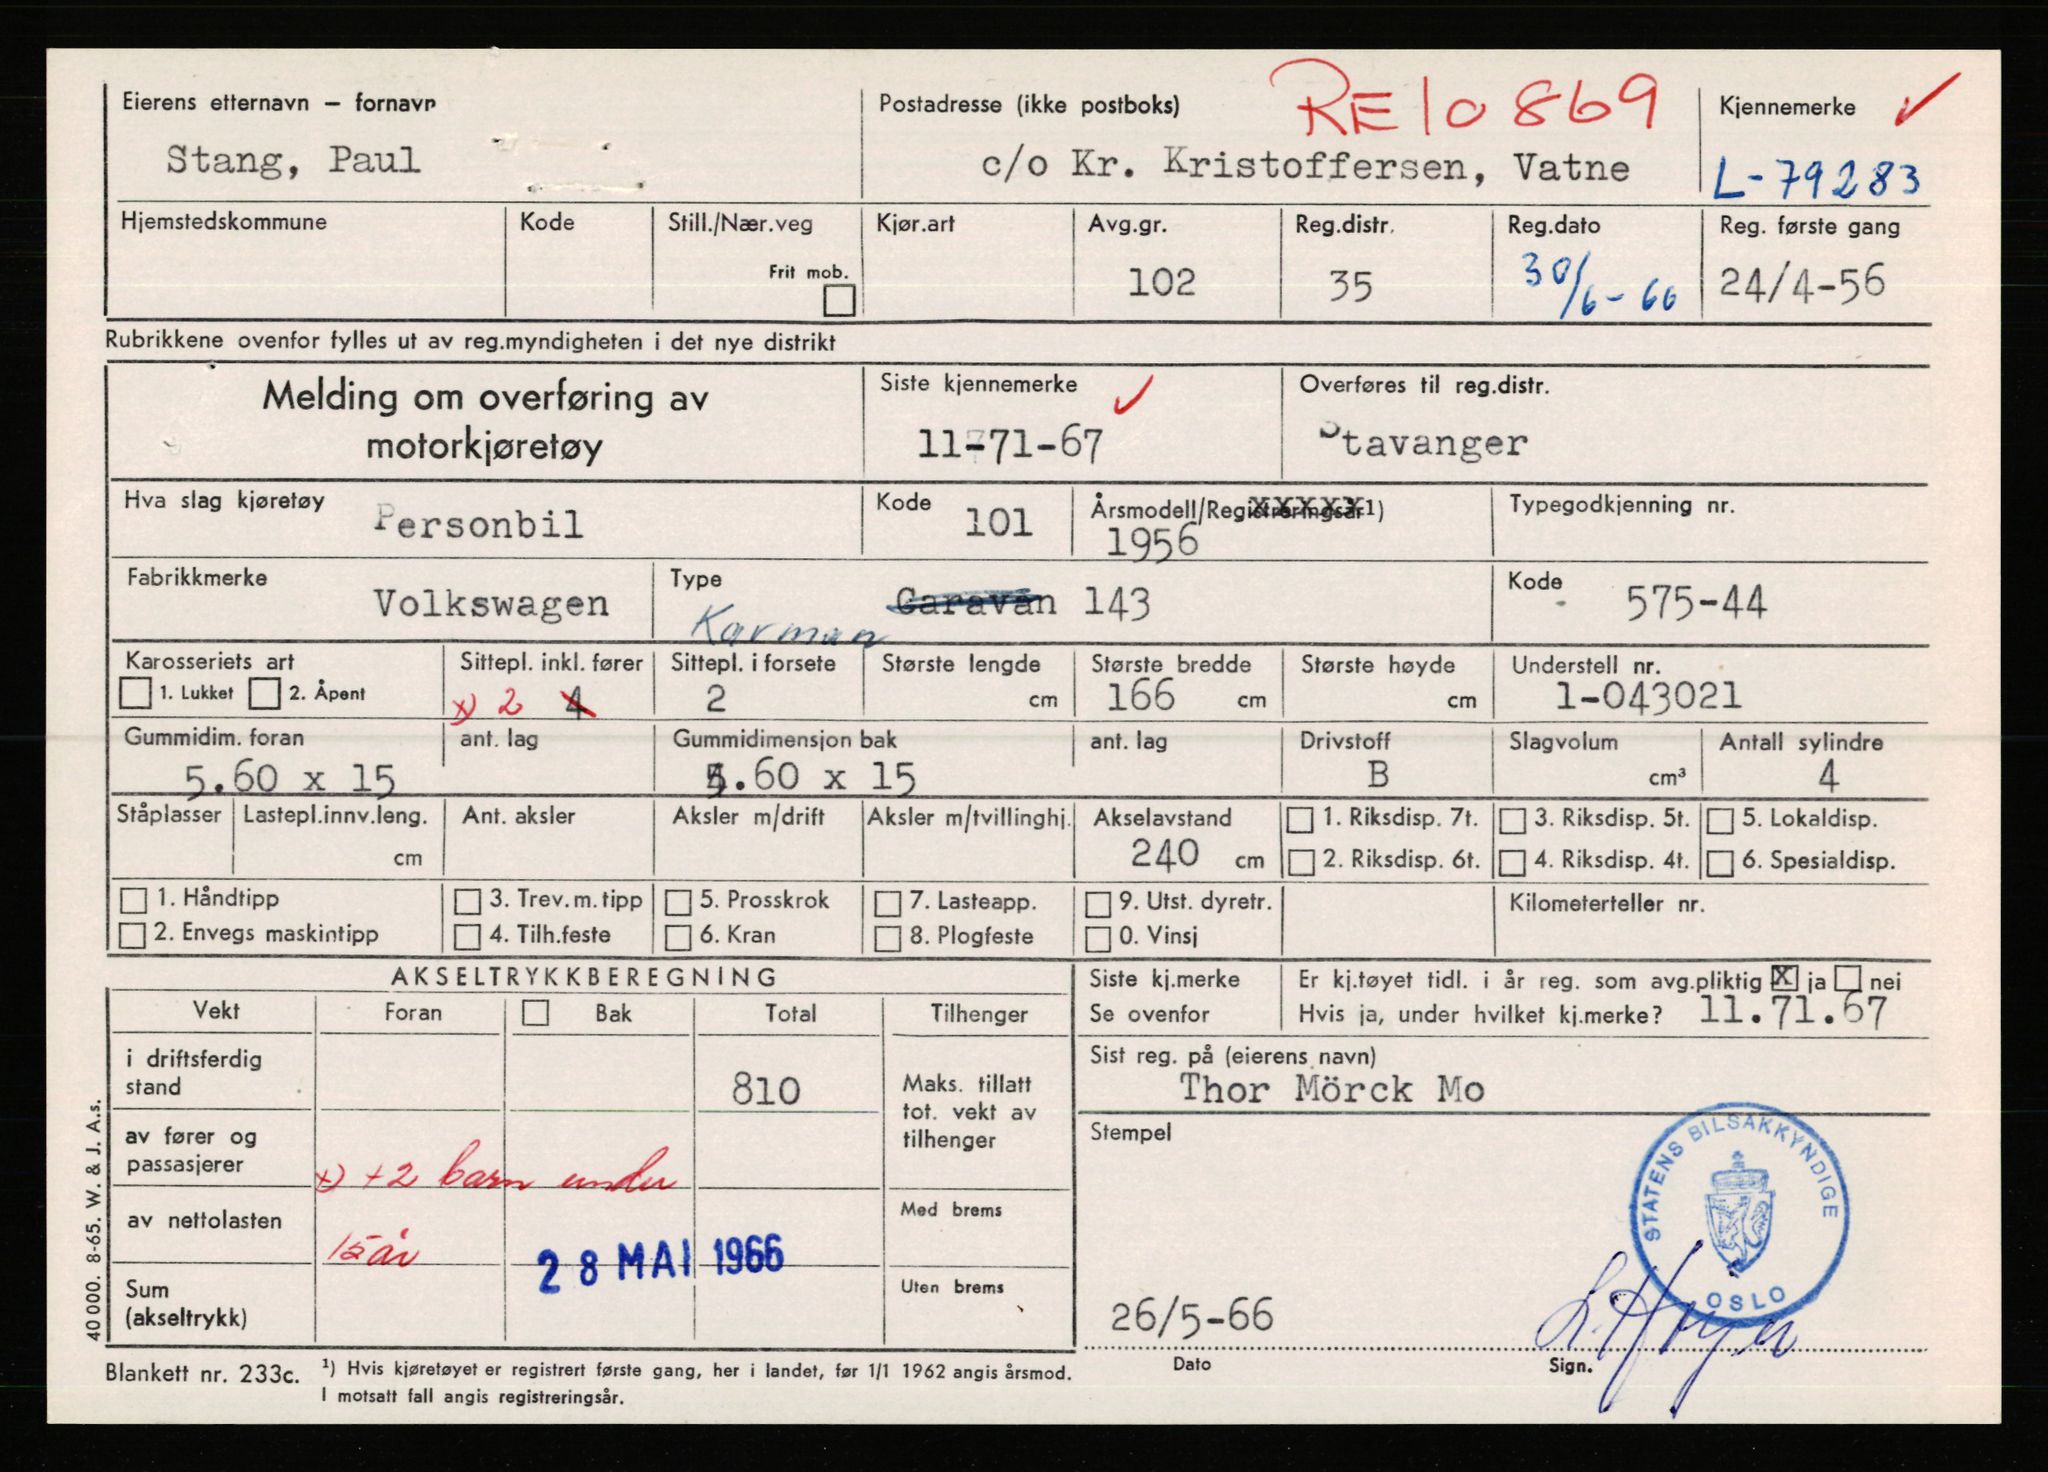 RE10869
Eierens etternavn – fornavn Postadresse (ikke postboks) Kjennemerke
Stang, Paul c/o Kr. Kristoffersen, Vatne L-79283
Hjemstedskommune Kode Still./Nær.veg Kjør.art Avg.gr. Reg.distr. Reg.dato Reg. første gang
Frit mob.
102 35 30/6-66 24/4-56
Rubrikkene ovenfor fylles ut av reg.myndigheten i det nye distrikt
Melding om overføring av
motorkjøretøy
Siste kjennemerke Overføres til reg.distr.
11-71-67 Stavanger
Hva slag kjøretøy Kode Årsmodell/Registreringsår1) Typegodkjenning nr.
Personbil 101 1956
Fabrikkmerke Type Kode
Volkswagen Caravan 143 575-44
Karman
Karosseriets art Sittepl. inkl. fører Sittepl. i forsete Største lengde Største bredde Største høyde Understell nr.
1. Lukket 2. Åpent x) 2 4 2 cm 166 cm cm 1-043021
Gummidim. foran ant. lag Gummidimensjon bak ant. lag Drivstoff Slagvolum Antall sylindre
5.60 x 15 5.60 x 15 B cm³ 4
Ståplasser Lastepl.innv.leng. Ant. aksler Aksler m/drift Aksler m/tvillinghj. Akselavstand 1. Riksdisp. 7t. 3. Riksdisp. 5t. 5. Lokaldisp.
cm 240 cm 2. Riksdisp. 6t. 4. Riksdisp. 4t. 6. Spesialdisp.
1. Håndtipp 3. Trev.m.tipp 5. Prosskrok 7. Lasteapp. 9. Utst. dyretr. Kilometerteller nr.
2. Envegs maskintipp 4. Tilh.feste 6. Kran 8. Plogfeste 0. Vinsj
AKSELTRYKKBEREGNING
Siste kj.merke Er kj.tøyet tidl. i år reg. som avg.pliktig X ja nei
Se ovenfor Hvis ja, under hvilket kj.merke? 11.71.67
Vekt Foran Bak Total Tilhenger
i driftsferdig
stand 810
Maks. tillatt
tot. vekt av
tilhenger
Sist reg. på (eierens navn)
Thor Mörck Mo
av fører og
passasjerer
x) +2 barn under
15 år
av nettolasten
Med brems
28 MAI 1966
Sum
(akseltrykk)
Uten brems
Stempel
STATENS BILSAKKYNDIGE
OSLO
26/5-66
Dato Sign.
40 000. 8-65. W. & J. A.s.
Blankett nr. 233c. 1) Hvis kjøretøyet er registrert første gang, her i landet, før 1/1 1962 angis årsmod.
I motsatt fall angis registreringsår.